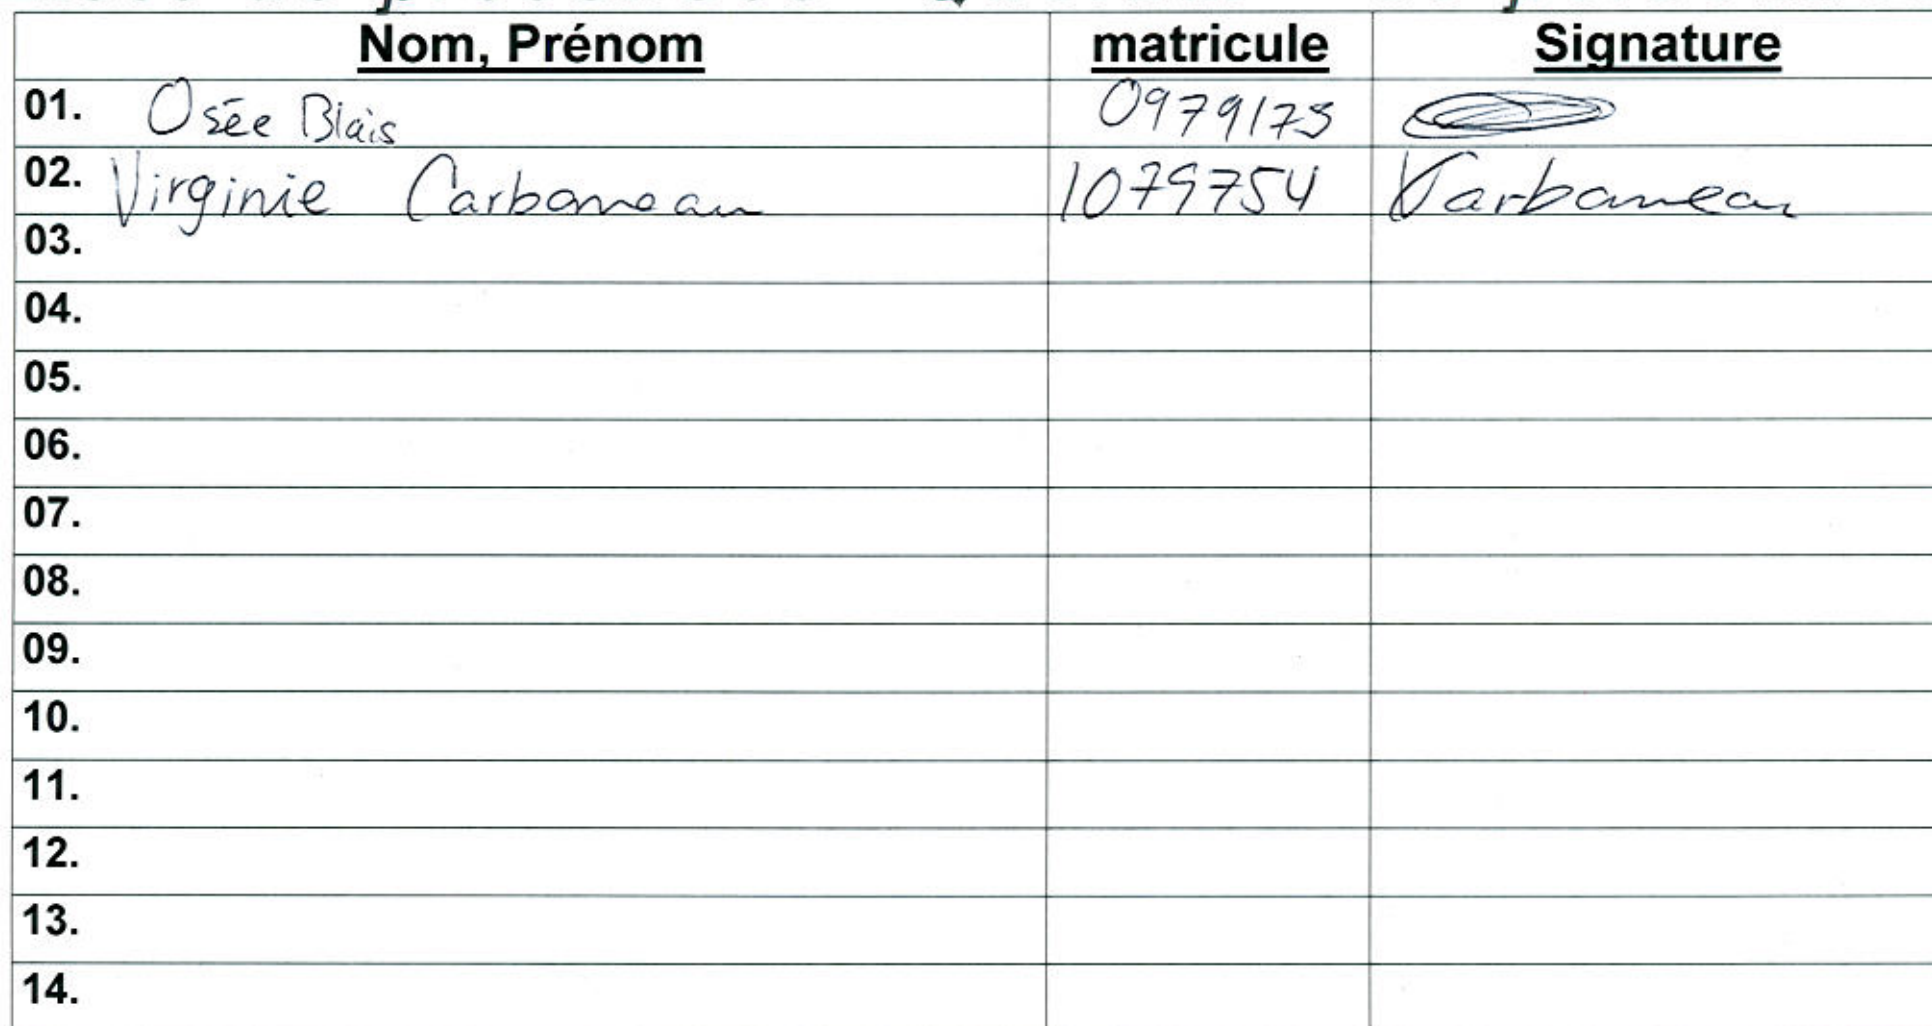 Nom, Prénom matricule Signature
01. Osée Blais 0979173
02. Virginie Carbonneau 1079754 VCarbonneau
03.
04.
05.
06.
07.
08.
09.
10.
11.
12.
13.
14.